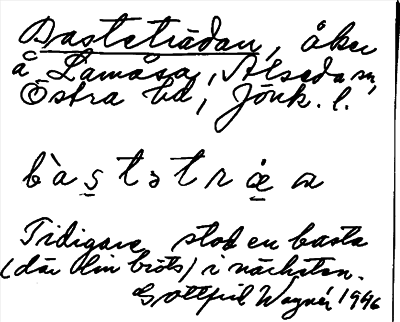 Basteträdan, åker
å Lamåsa, Alseda sn,
Östra hd, Jönk. l.
bàs̱tətræ̱n
Tidigare stod en basta
(där lin bröts) i närheten.
Gottfrid Wagnér 1946